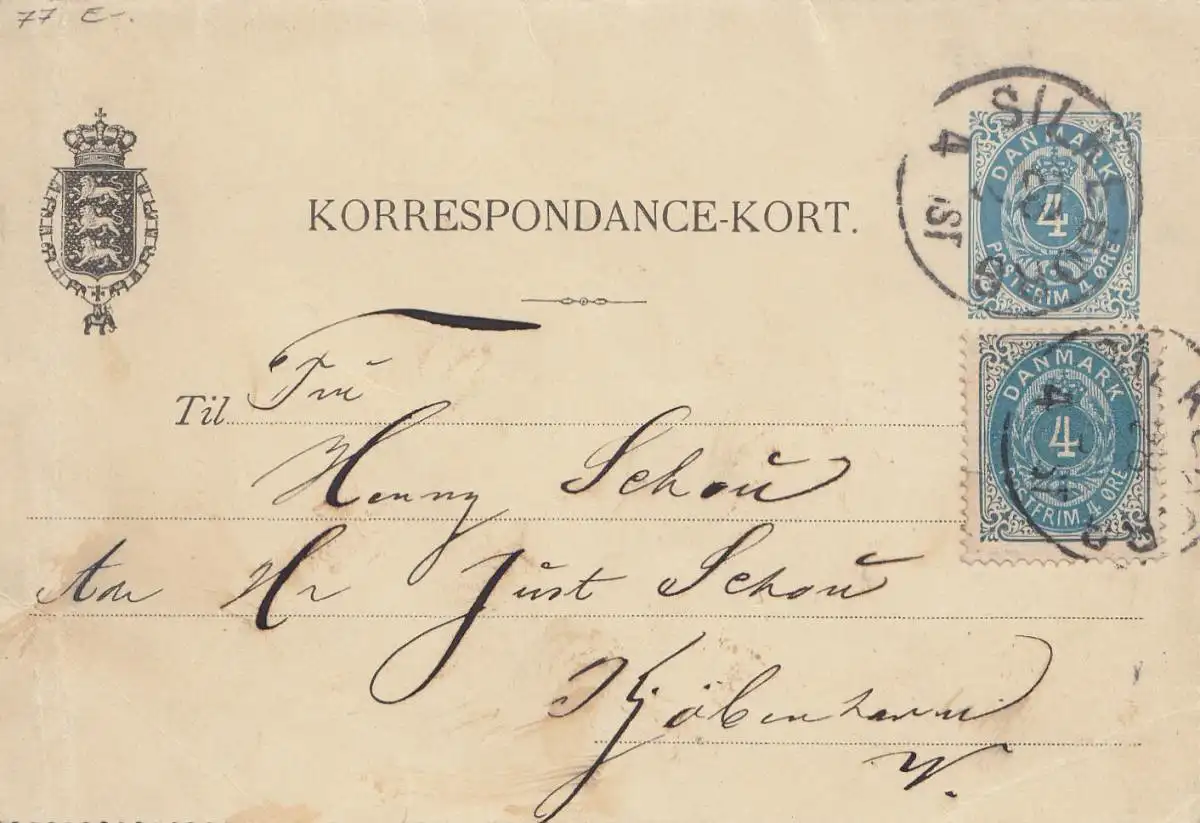 77 E-.
KORRESPONDANCE-KORT.
DANMARK
4
POSTFRIM 4 ØRE
SILKEBORG
4 ST
DANMARK
4
POSTFRIM 4 ØRE
4
Til Fru
Henny Schou
Adr Hr Just Schou
Kjöbenhavn
V.